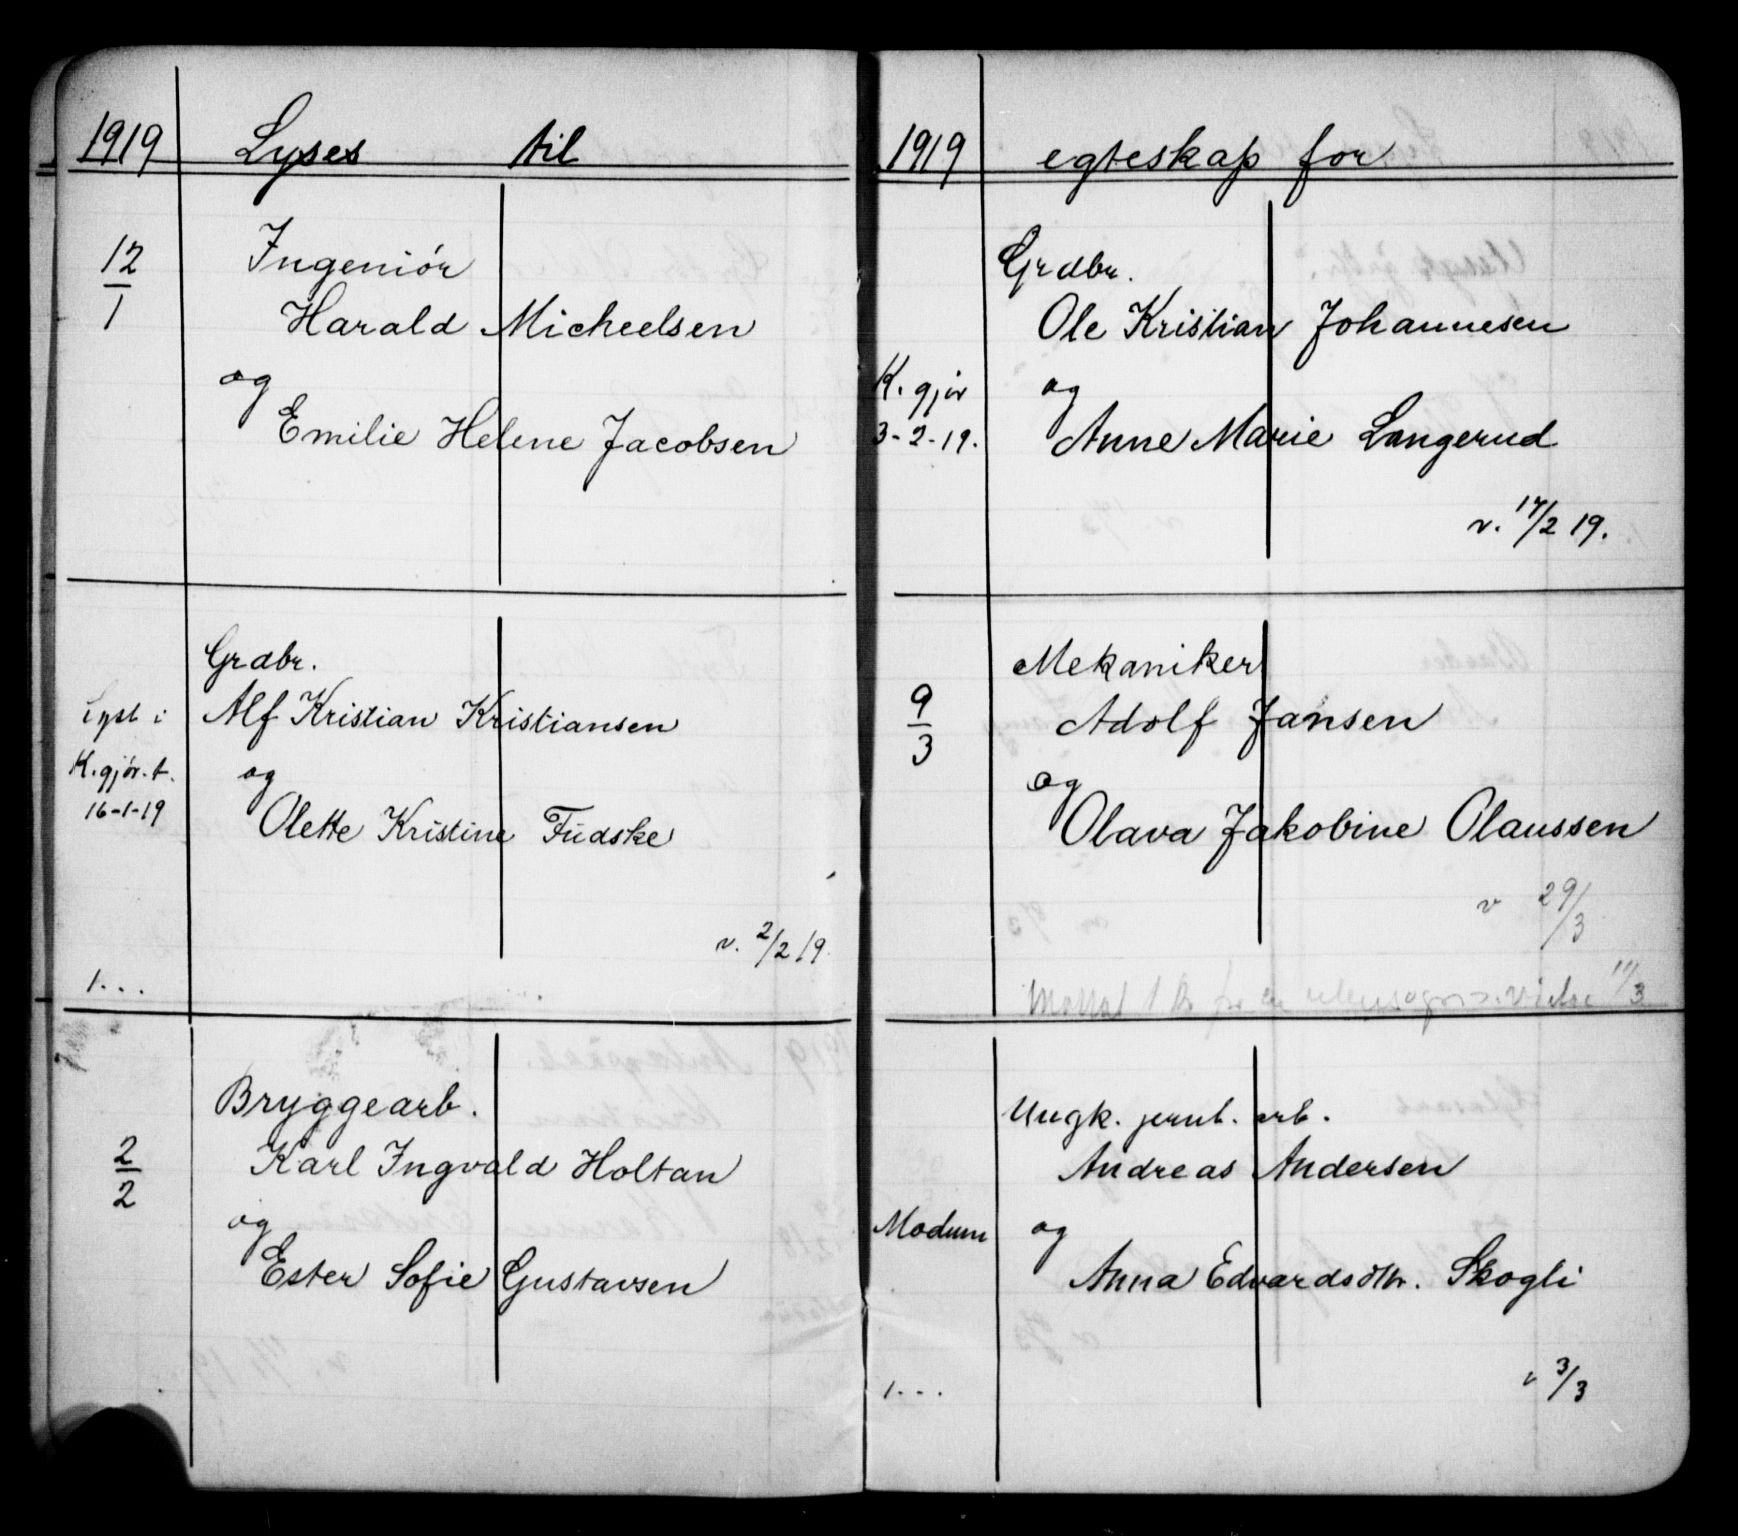 1919 Lyses til
12/1
Ingeniör
Harald Micheelsen
og
Emilie Helene Jacobsen
Grdbr.
Lyst i
Alf Kristian Kristiansen
K.gjör. t.
og
16-1-19
Olette Kristine Fudske
v. 2/2 19.
1...
Bryggearb.
2/2
Karl Ingvald Holtan
og
Ester Sofie Gustavsen
1919 egteskap for
Grdbr.
Ole Kristian Johannesen
K. gjör
og
3-2-19.
Anne Marie Langerud
v. 17/2 19.
Mekaniker
9/3
Adolf Jansen
og
Olava Jakobine Olaussen
v 29/3
1 11/3
Ungk. jernb. arb.
Andreas Andersen
Modum
og
Anna Edvardsdtr. Skogli
1...
v 3/3